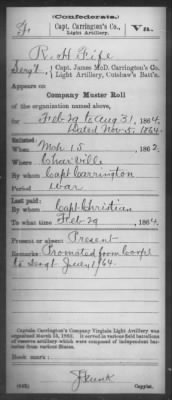 Confederate.
F Capt. Carrington's Co., Va.
Light Artillery.
R. H. Fife
Sergt., Capt. James McD. Carrington's Co.
Light Artillery, Cutshaw's Batt'n.
Appears on
Company Muster Roll
of the organization named above,
for Feb 29 to Aug 31, 1864.
Dated Nov. 5, 1864
Enlisted:
When Mch 15, 1862.
Where Char'ville
By whom Capt Carrington
Period War
Last paid:
By whom Capt. Christian
To what time Feb 29, 1864.
Present or absent Present
Remarks: Promoted from Corpl
to Sergt July 1/64.
Captain Carrington's Company Virginia Light Artillery was
organized March 15, 1862. It served in various field battalions
of reserve artillery which were composed of independent bat-
teries from various States.
Book mark:
(642)
Copyist.